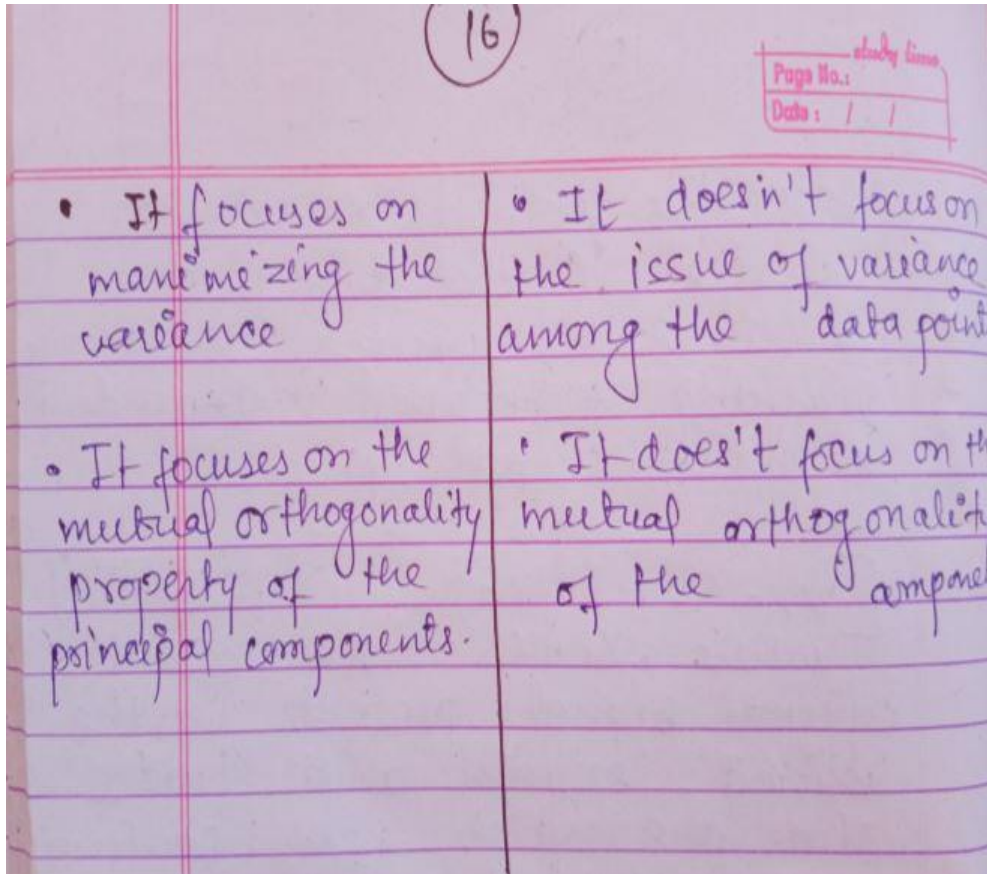 16
study time
Page No.:
Date: / /
• It focuses on
maximeizing the
variance
• It focuses on the
mutual orthogonality
property of the
principal components.
• It doesn't focus on
the issue of variance
among the data point
• It does't focus on th
mutual orthogonalit
of the